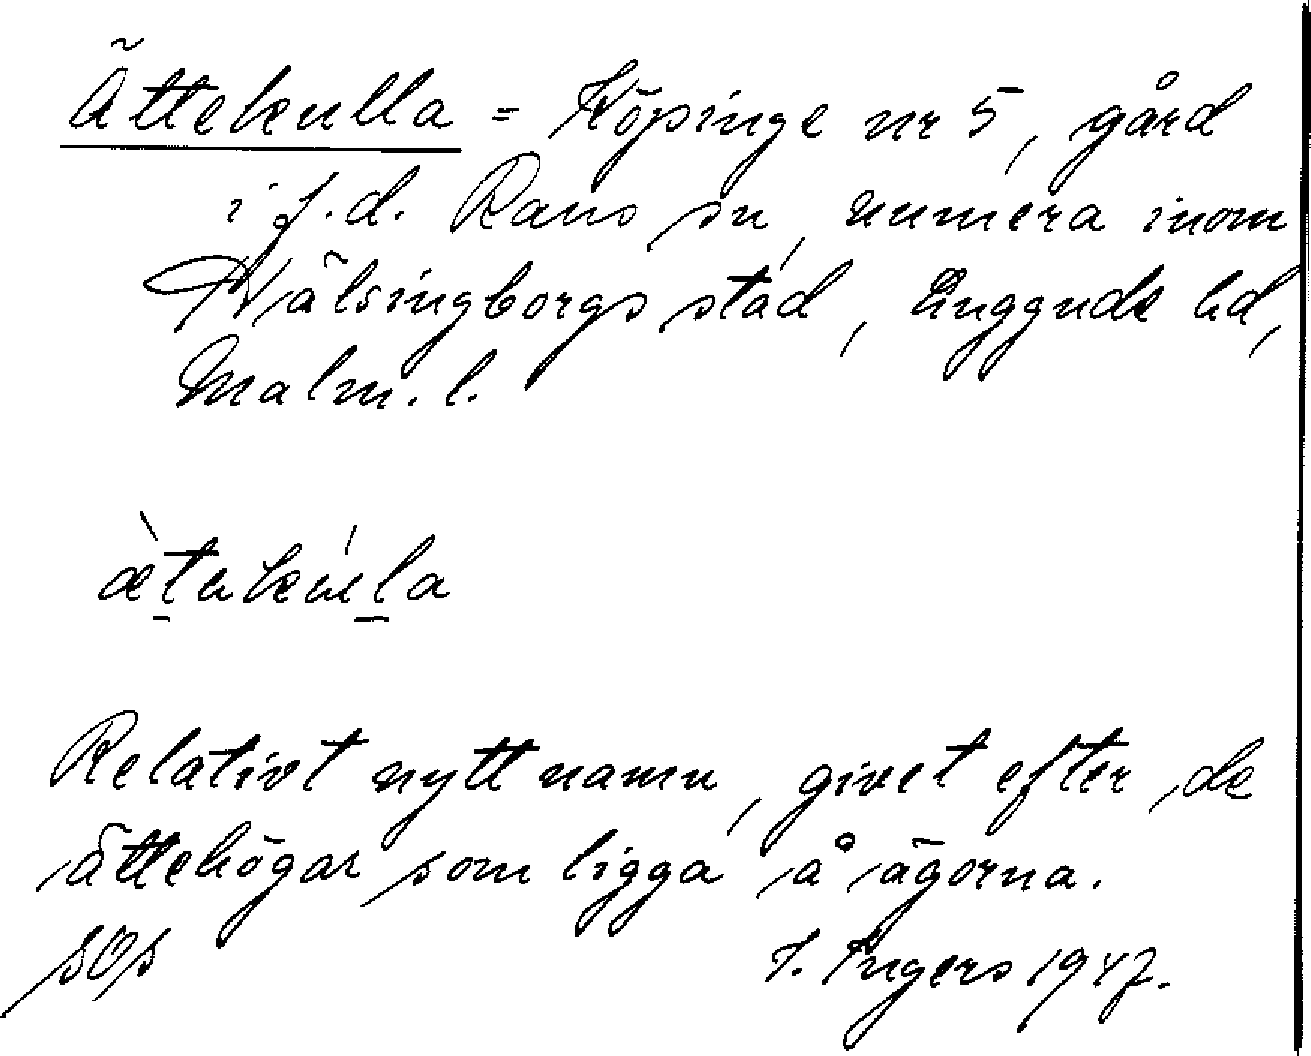 Ättekulla = Köpinge nr 5, gård
i f.d. Raus sn, numera inom
Hälsingborgs stad, Luggude hd,
Malm. l.
Relativt nytt namn, givet efter de
ättehögar som ligga å ägorna.
SOS I. Ingers 1947.